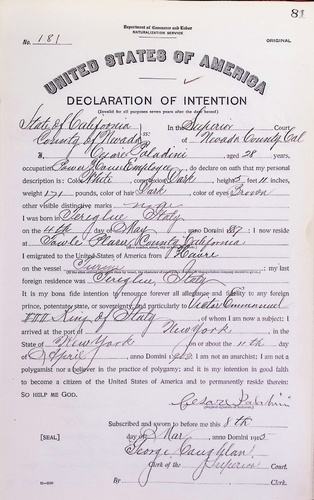 81
Department of Commerce and Labor
NATURALIZATION SERVICE
No. 181
ORIGINAL
UNITED STATES OF AMERICA
DECLARATION OF INTENTION
(Invalid for all purposes seven years after the date hereof)
State of California
In the Superior Court
County of Nevada
ss:
of Nevada County Cal
I, Cesare Paladini, aged 28 years,
occupation Power House Employee, do declare on oath that my personal
description is: Color White, complexion Dark, height 5 feet 11 inches,
weight 171 pounds, color of hair Dark, color of eyes Brown
other visible distinctive marks none
I was born in Italy
on the 4th day of May, anno Domini; I now reside
at County California
I emigrated to the United States of America from Havre
on the vessel; my last
foreign residence was Italy
It is my bona fide intention to renounce forever all allegiance and fidelity to any foreign
prince, potentate, state, or sovereignty, and particularly to Victor Emmanuel
III King of Italy, of whom I am now a subject; I
arrived at the port of New York, in the
State of New York on or about the 11th day
of April, anno Domini; I am not an anarchist; I am not a
polygamist nor a believer in the practice of polygamy; and it is my intention in good faith
to become a citizen of the United States of America and to permanently reside therein:
SO HELP ME GOD.
Cesare Paladini
Subscribed and sworn to before me this 8th
[SEAL]
day of Mar, anno Domini
George
Clerk of the Superior Court.
Clerk.